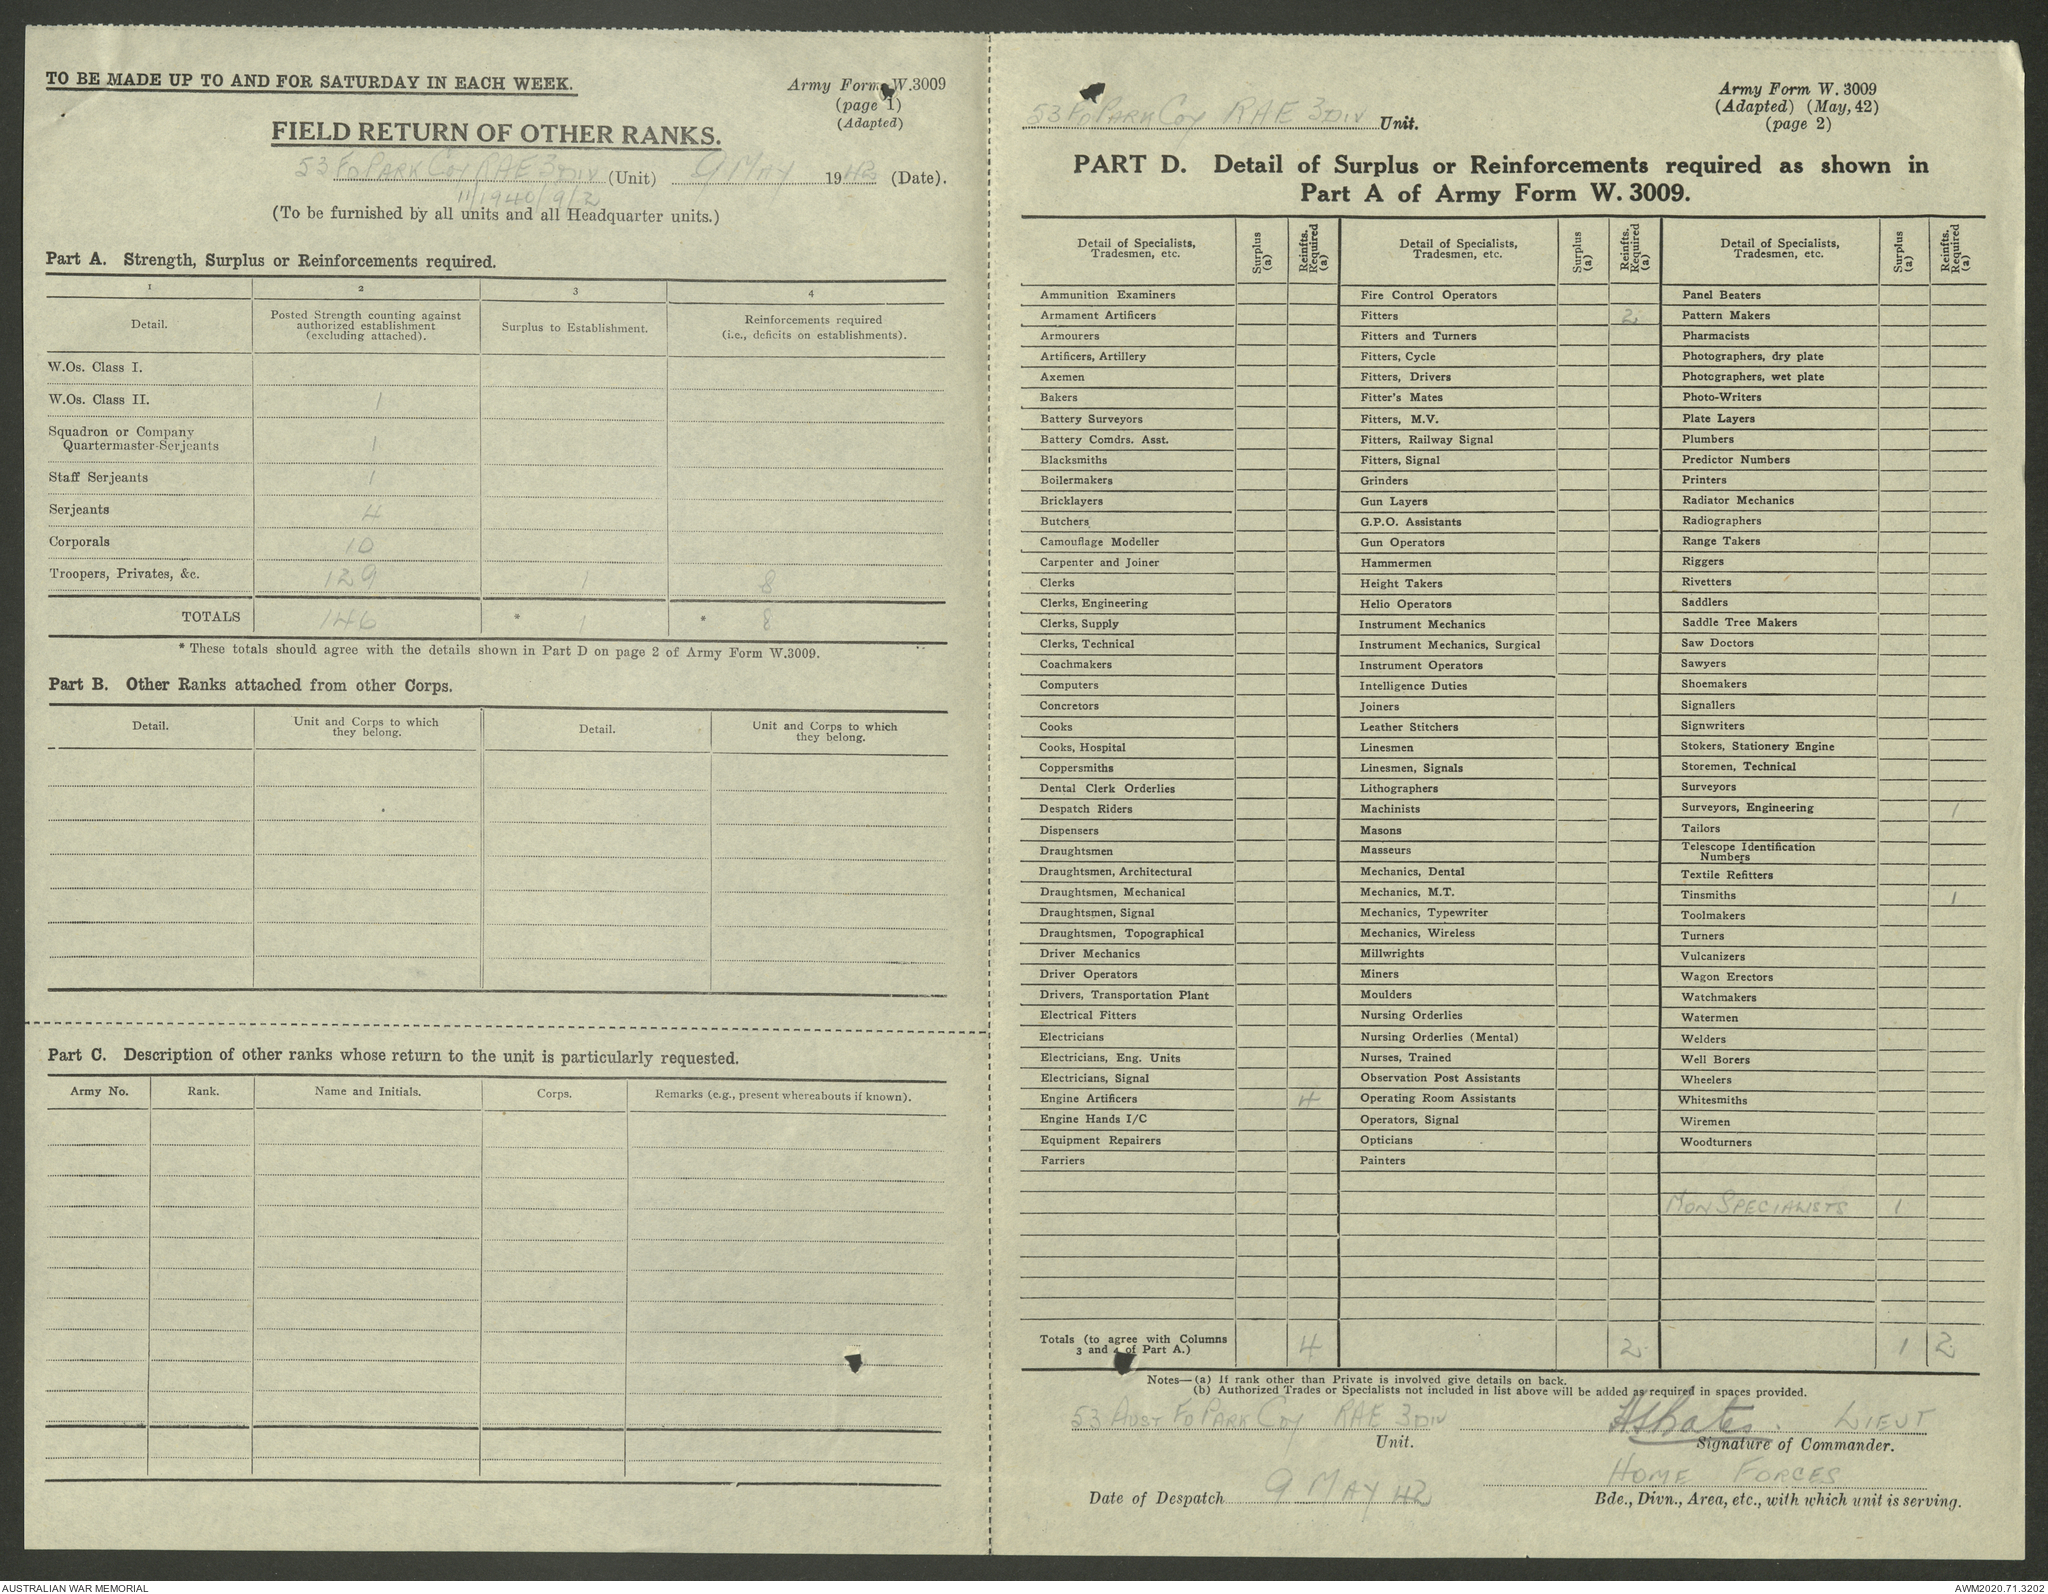 TO BE MADE UP TO AND FOR SATURDAY IN EACH WEEK.
Army Form W.3009
(page 1)
(Adapted)
FIELD RETURN OF OTHER RANKS.
53 FD PARK COY RAE 3 DIV (Unit) 9 MAY 1942 (Date).
11/1940/9/2
(To be furnished by all units and all Headquarter units.)
Part A. Strength, Surplus or Reinforcements required.
1 2 3 4
Detail. Posted Strength counting against authorized establishment (excluding attached). Surplus to Establishment. Reinforcements required (i.e., deficits on establishments).
W.Os. Class I.
W.Os. Class II. 1
Squadron or Company
Quartermaster-Serjeants 1
Staff Serjeants 1
Serjeants 4
Corporals 10
Troopers, Privates, &c. 129 1 8
TOTALS 146 * 1 * 8
* These totals should agree with the details shown in Part D on page 2 of Army Form W.3009.
Part B. Other Ranks attached from other Corps.
Detail. Unit and Corps to which they belong. Detail. Unit and Corps to which they belong.
Part C. Description of other ranks whose return to the unit is particularly requested.
Army No. Rank. Name and Initials. Corps. Remarks (e.g., present whereabouts if known).
Army Form W. 3009
(Adapted) (May, 42)
(page 2)
53 FD PARK COY RAE 3 DIV Unit.
PART D. Detail of Surplus or Reinforcements required as shown in
Part A of Army Form W. 3009.
Detail of Specialists, Tradesmen, etc. Surplus (a) Reinfts. Required (a) Detail of Specialists, Tradesmen, etc. Surplus (a) Reinfts. Required (a) Detail of Specialists, Tradesmen, etc. Surplus (a) Reinfts. Required (a)
Ammunition Examiners Fire Control Operators Panel Beaters
Armament Artificers Fitters 2 Pattern Makers
Armourers Fitters and Turners Pharmacists
Artificers, Artillery Fitters, Cycle Photographers, dry plate
Axemen Fitters, Drivers Photographers, wet plate
Bakers Fitter's Mates Photo-Writers
Battery Surveyors Fitters, M.V. Plate Layers
Battery Comdrs. Asst. Fitters, Railway Signal Plumbers
Blacksmiths Fitters, Signal Predictor Numbers
Boilermakers Grinders Printers
Bricklayers Gun Layers Radiator Mechanics
Butchers G.P.O. Assistants Radiographers
Camouflage Modeller Gun Operators Range Takers
Carpenter and Joiner Hammermen Riggers
Clerks Height Takers Rivetters
Clerks, Engineering Helio Operators Saddlers
Clerks, Supply Instrument Mechanics Saddle Tree Makers
Clerks, Technical Instrument Mechanics, Surgical Saw Doctors
Coachmakers Instrument Operators Sawyers
Computers Intelligence Duties Shoemakers
Concretors Joiners Signallers
Cooks Leather Stitchers Signwriters
Cooks, Hospital Linesmen Stokers, Stationery Engine
Coppersmiths Linesmen, Signals Storemen, Technical
Dental Clerk Orderlies Lithographers Surveyors
Despatch Riders Machinists Surveyors, Engineering 1
Dispensers Masons Tailors
Draughtsmen Masseurs Telescope Identification Numbers
Draughtsmen, Architectural Mechanics, Dental Textile Refitters
Draughtsmen, Mechanical Mechanics, M.T. Tinsmiths 1
Draughtsmen, Signal Mechanics, Typewriter Toolmakers
Draughtsmen, Topographical Mechanics, Wireless Turners
Driver Mechanics Millwrights Vulcanizers
Driver Operators Miners Wagon Erectors
Drivers, Transportation Plant Moulders Watchmakers
Electrical Fitters Nursing Orderlies Watermen
Electricians Nursing Orderlies (Mental) Welders
Electricians, Eng. Units Nurses, Trained Well Borers
Electricians, Signal Observation Post Assistants Wheelers
Engine Artificers 4 Operating Room Assistants Whitesmiths
Engine Hands I/C Operators, Signal Wiremen
Equipment Repairers Opticians Woodturners
Farriers Painters
NON SPECIALISTS 1
Totals (to agree with Columns
3 and 4 of Part A.) 4 2 1 2
Notes—(a) If rank other than Private is involved give details on back.
(b) Authorized Trades or Specialists not included in list above will be added as required in spaces provided.
53 AUST FD PARK COY RAE 3 DIV LIEUT
Unit. Signature of Commander.
HOME FORCES
Date of Despatch 9 MAY 42 Bde., Divn., Area, etc., with which unit is serving.
AUSTRALIAN WAR MEMORIAL AWM2020.71.3202